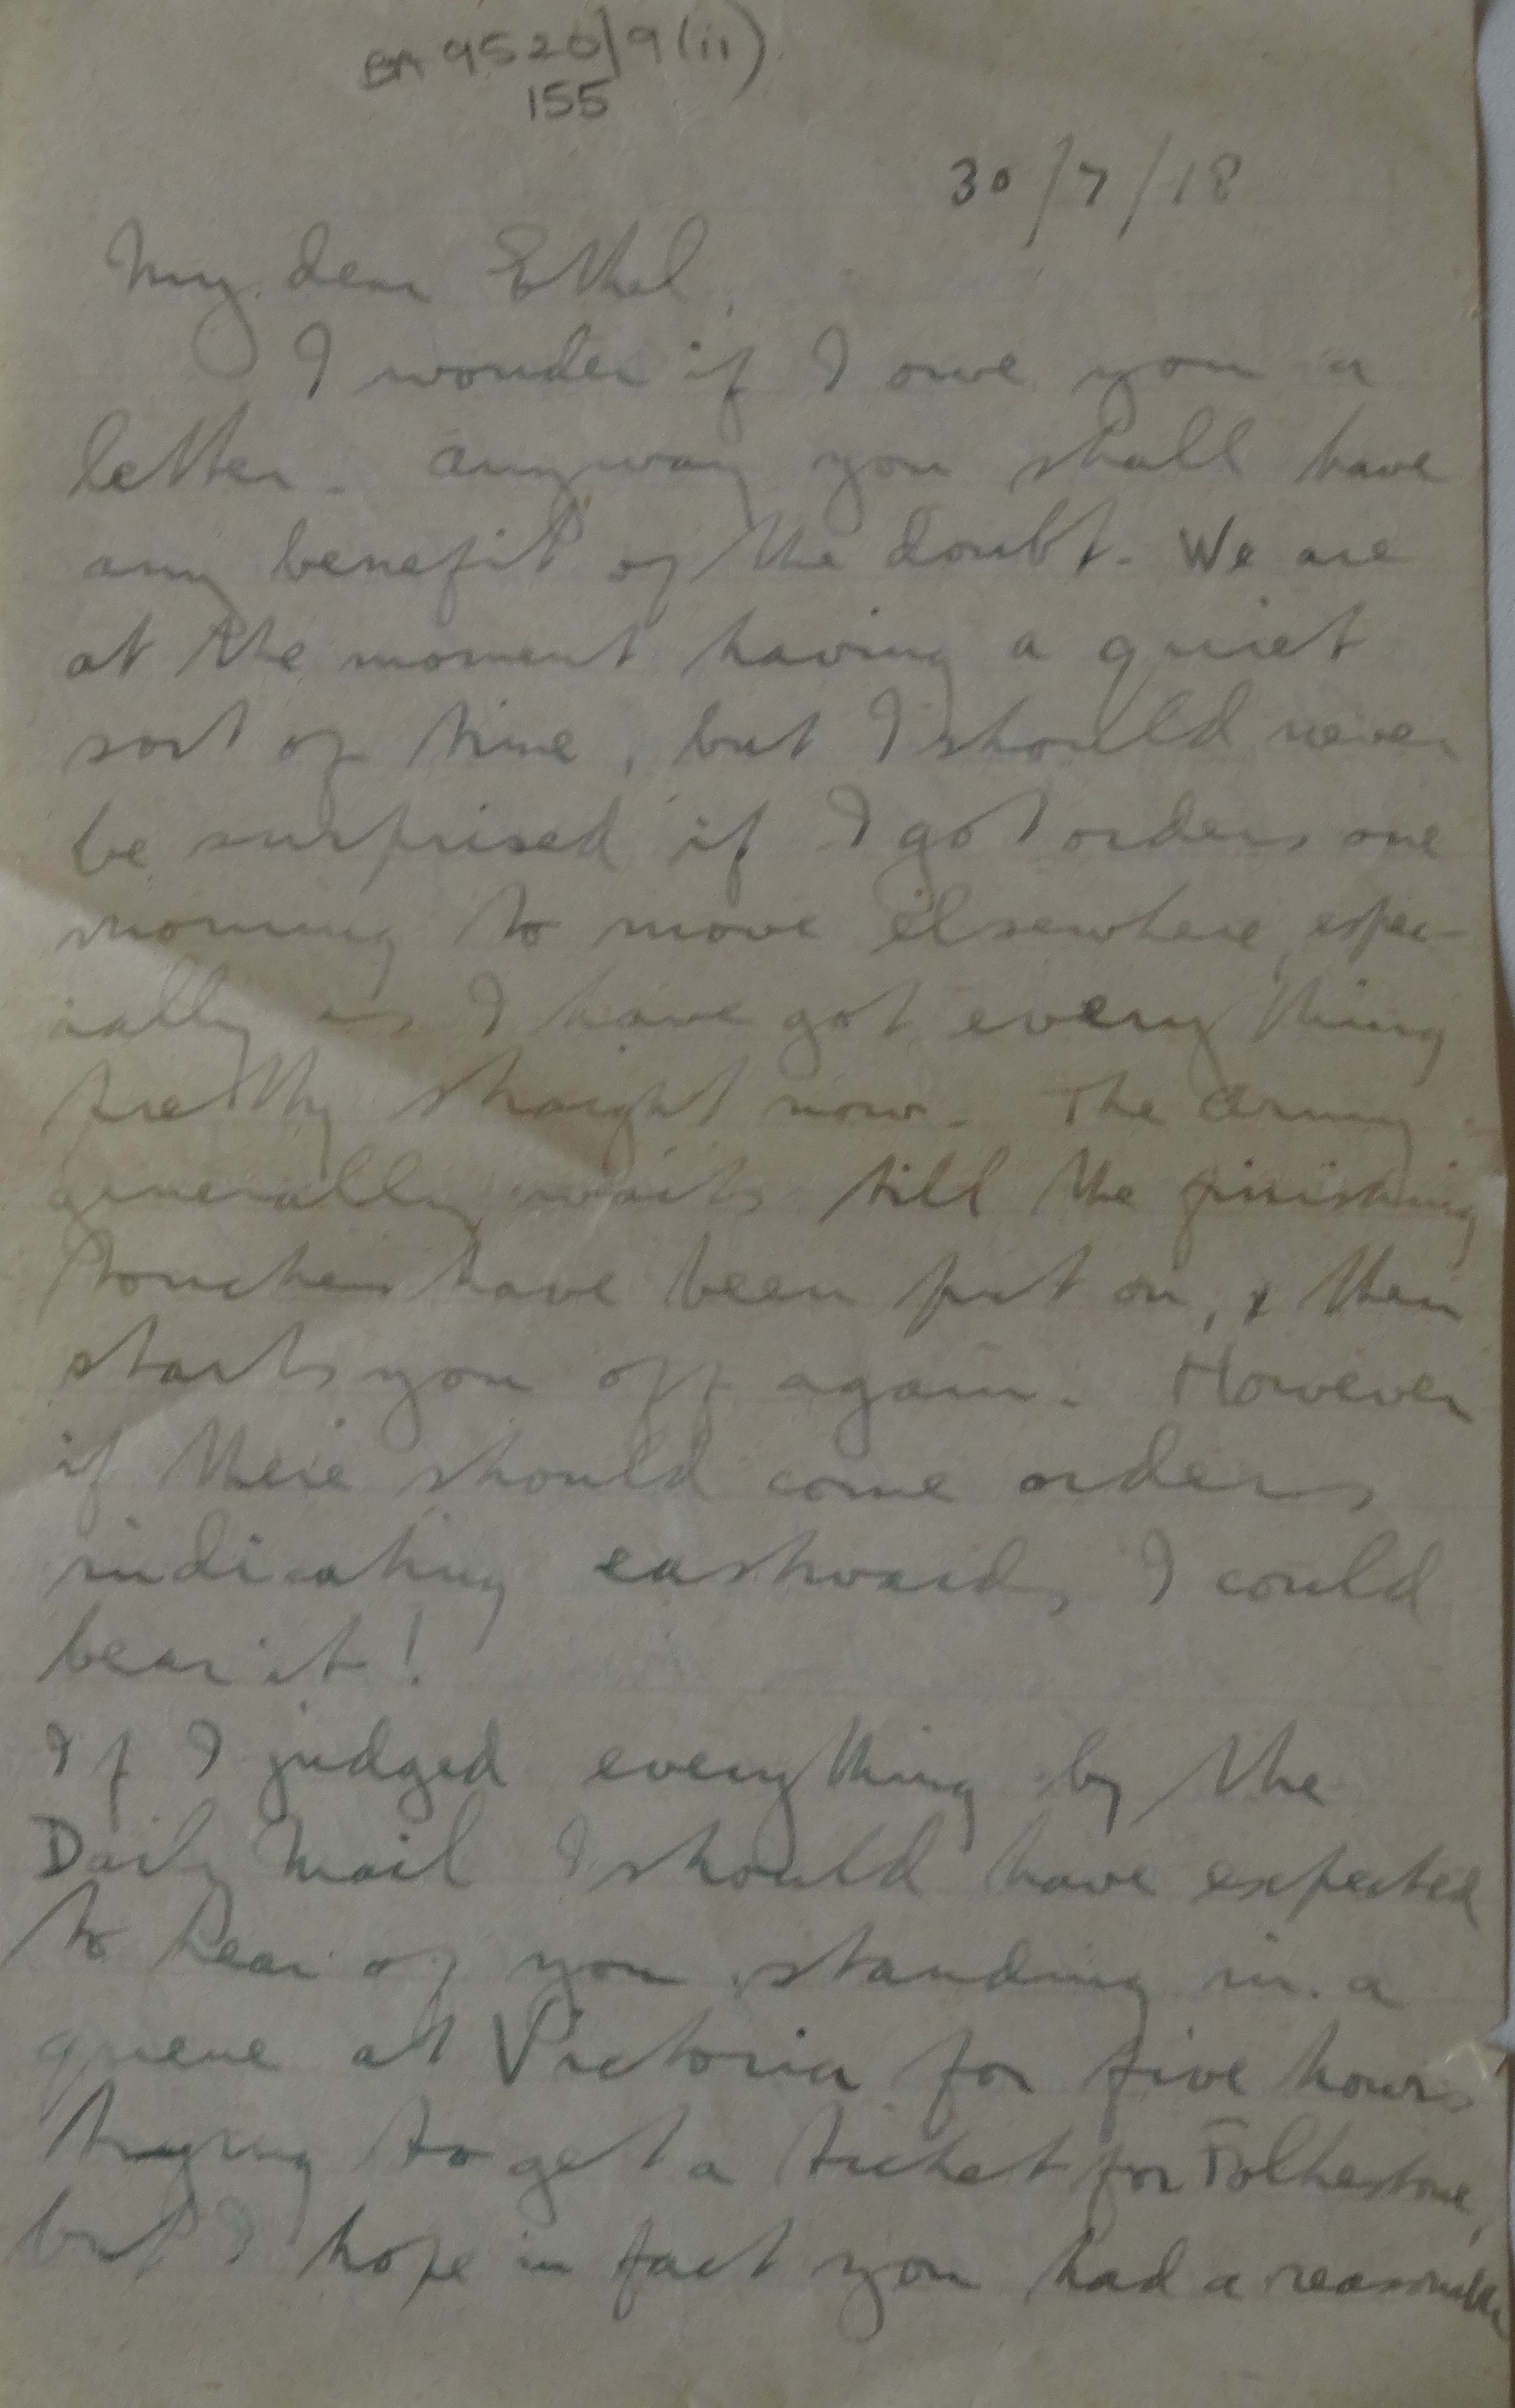 BA 9520/9(ii)
155
30/7/18
My dear Ethel,
I wonder if I owe you a
letter. Anyway you shall have
any benefit of the doubt. We are
at the moment having a quiet
sort of time, but I should never
be surprised if I got orders one
morning to move elsewhere, espec-
ially as I have got everything
pretty straight now. The Army
generally waits till the finishing
touches have been put on, & then
starts you off again. However
if there should come orders
indicating eastwards, I could
bear it!
If I judged everything by the
Daily Mail I should have expected
to hear of you standing in a
queue at Victoria for five hours
trying to get a ticket for Folkestone,
but I hope in fact you had a reasonable